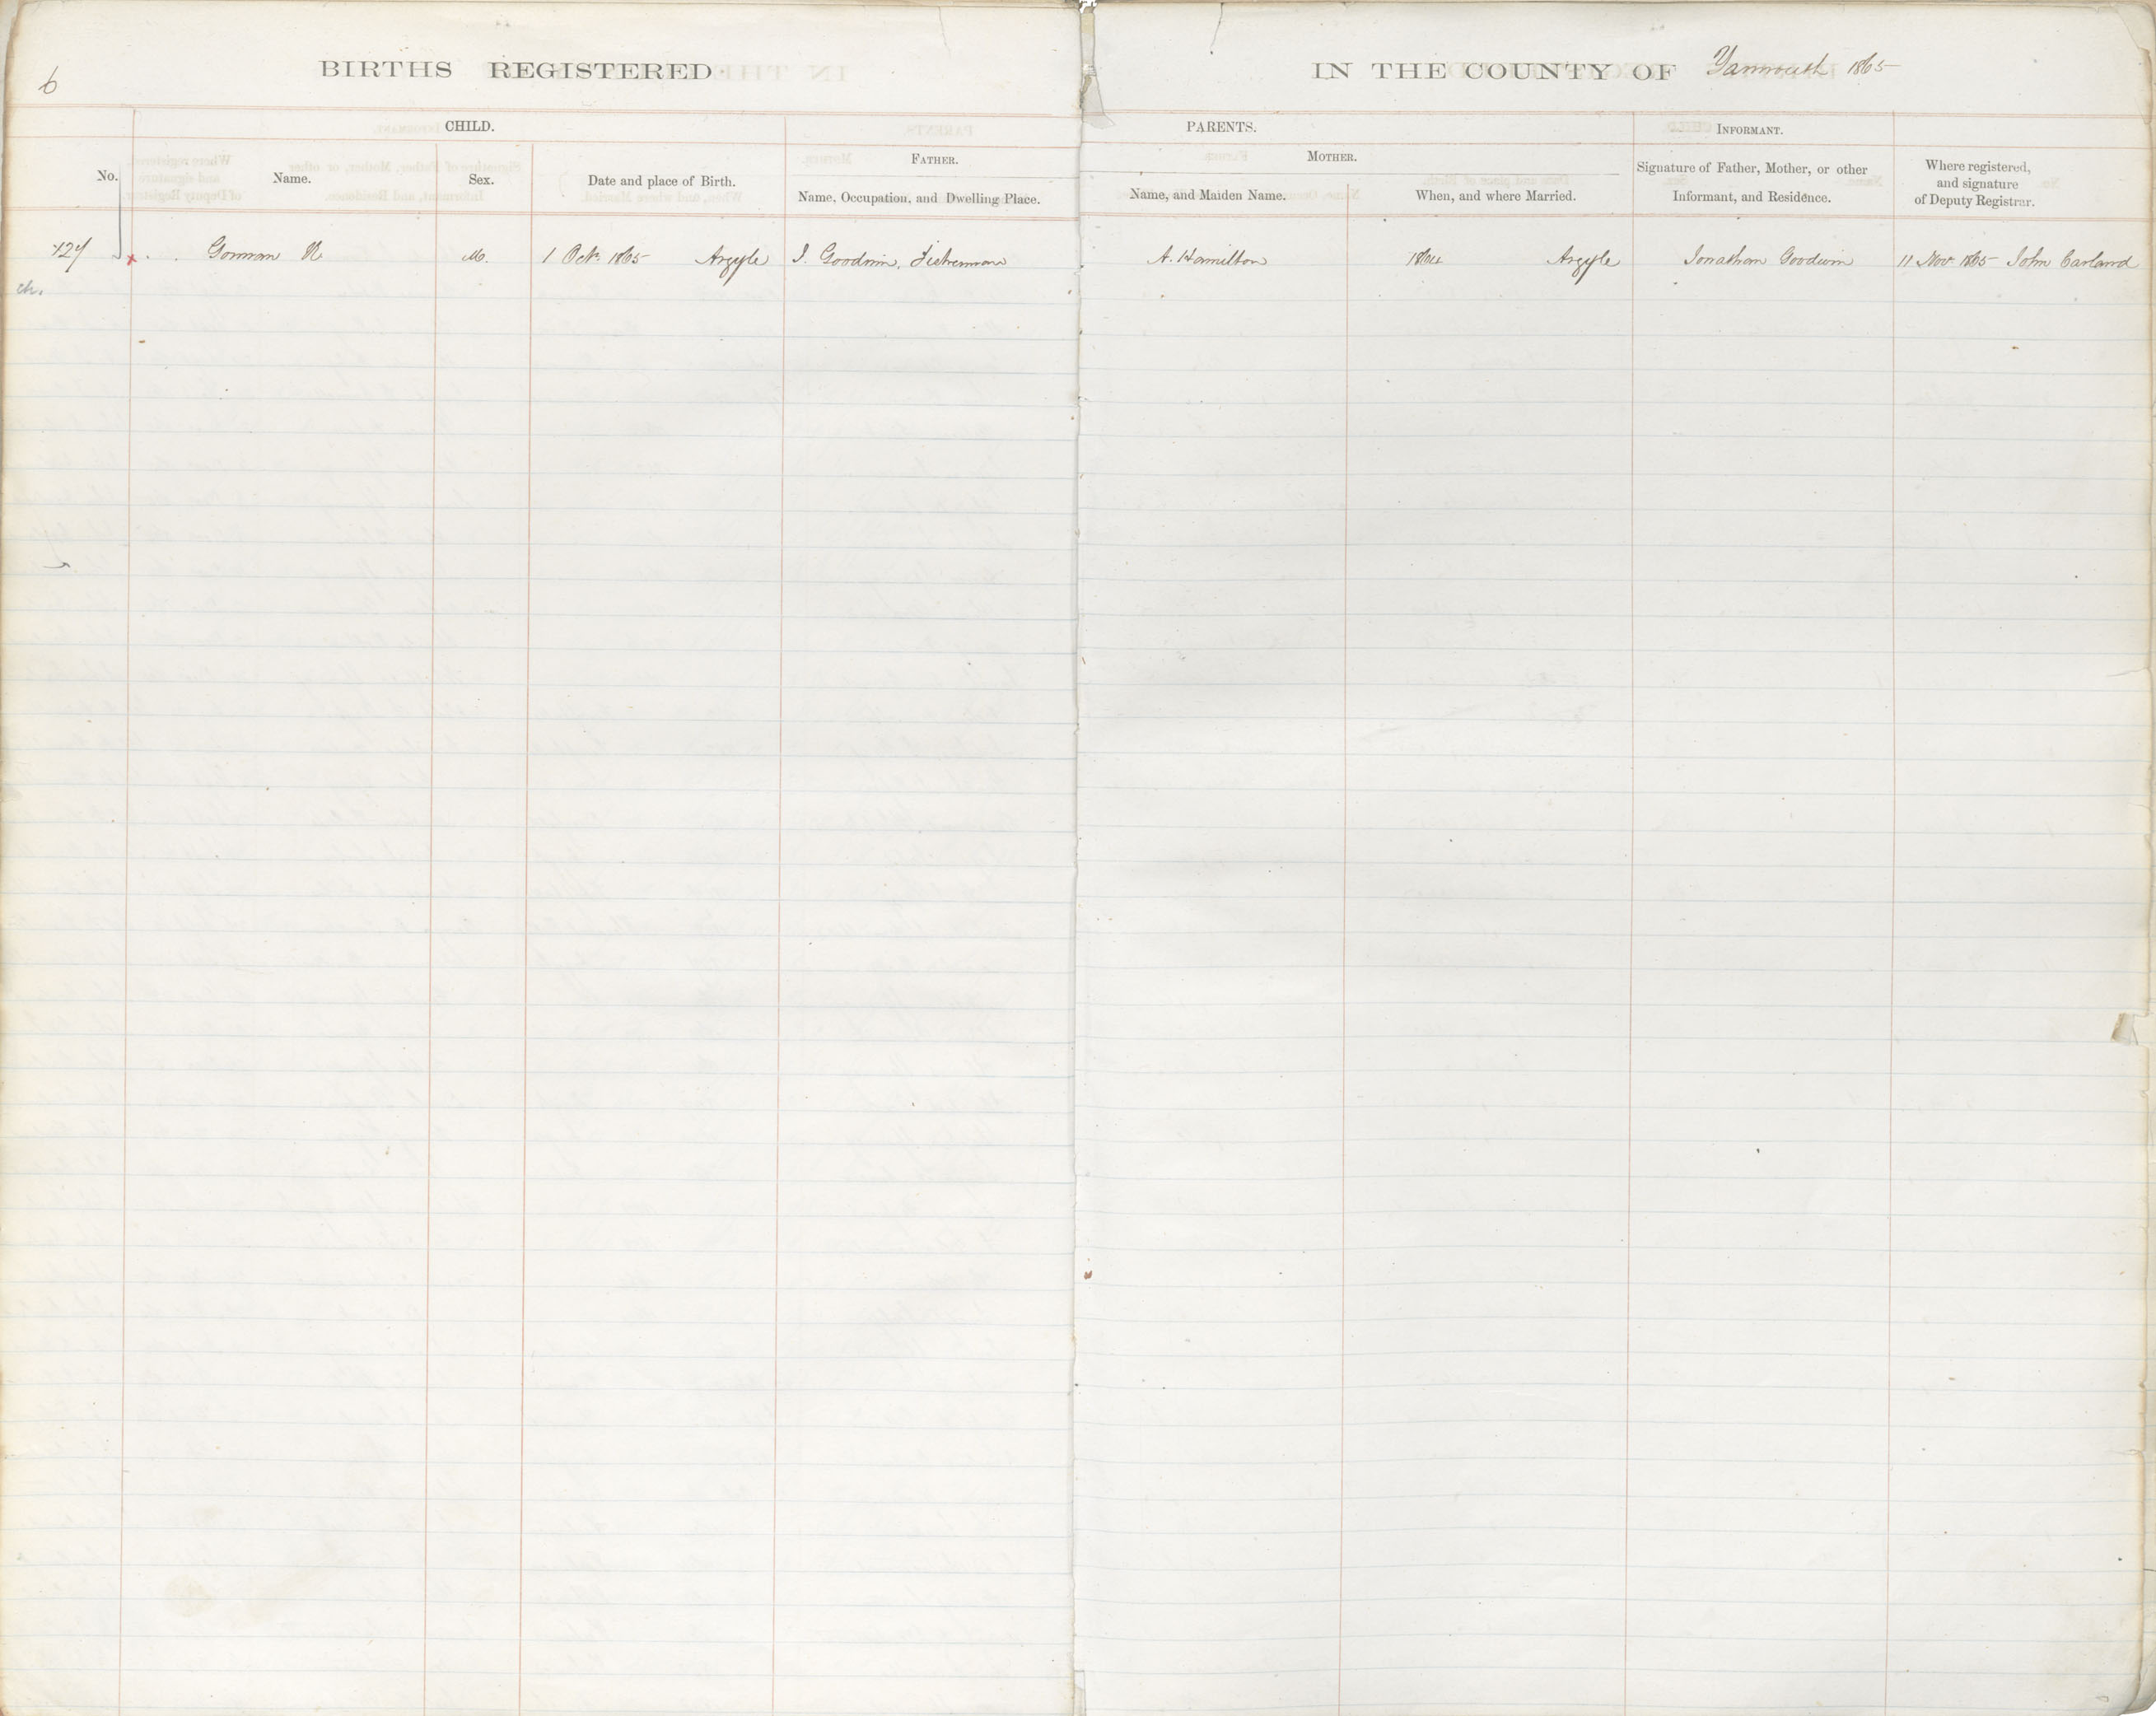 6
BIRTHS REGISTERED
IN THE COUNTY OF Yarmouth 1865
CHILD.
PARENTS.
INFORMANT.
No.
Name.
Sex.
Date and place of Birth.
FATHER.
Name, Occupation, and Dwelling Place.
MOTHER.
Name, and Maiden Name.
When, and where Married.
Signature of Father, Mother, or other
Informant, and Residence.
Where registered,
and signature
of Deputy Registrar.
127 Gorman N. M. 1 Oct. 1865 Argyle J. Goodwin, Fisherman A. Hamilton 1864 Argyle Jonathan Goodwin 11 Nov 1865 John Carland
ch.